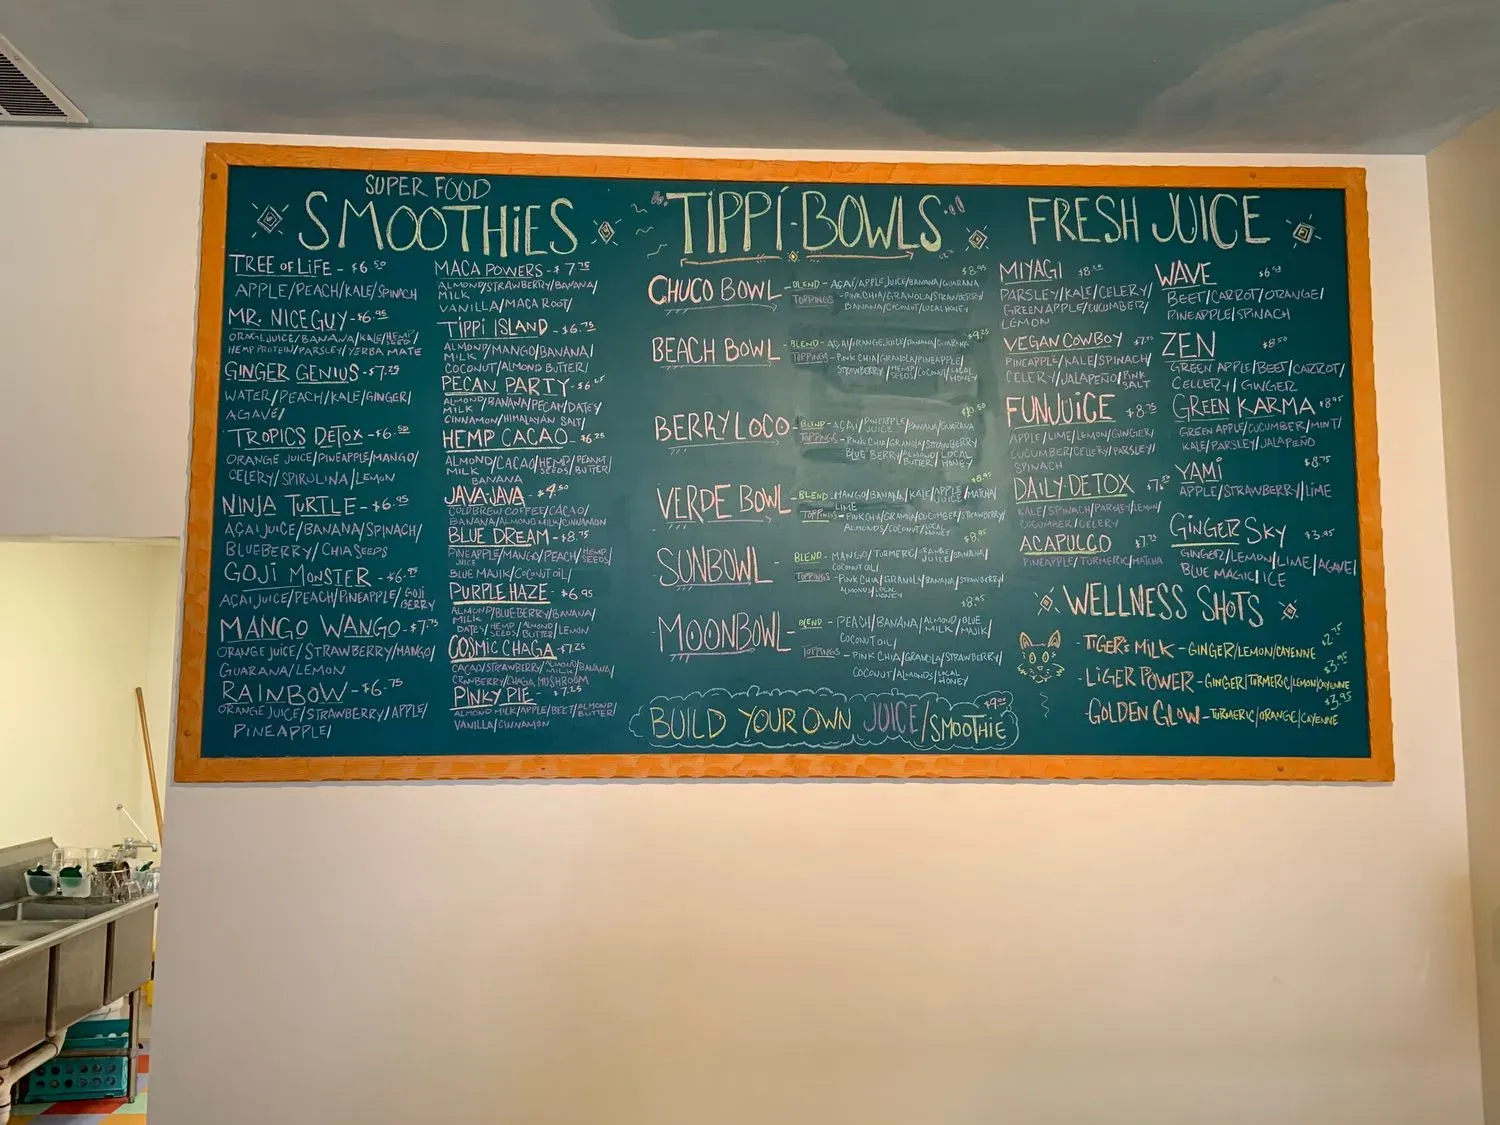 SUPER FOOD
SMOOTHIES
TREE OF LIFE - $6.50
APPLE/PEACH/KALE/SPINACH
MR. NICE GUY - $6.95
ORANGE JUICE/BANANA/KALE/HEMP SEED/
HEMP PROTEIN/PARSLEY/YERBA MATE
GINGER GENIUS - $7.25
WATER/PEACH/KALE/GINGER/
AGAVÉ/
TROPICS DETOX - $6.50
ORANGE JUICE/PINEAPPLE/MANGO/
CELERY/SPIRULINA/LEMON
NINJA TURTLE - $6.95
AÇAI JUICE/BANANA/SPINACH/
BLUEBERRY/CHIA SEEDS
GOJI MONSTER - $6.75
AÇAI JUICE/PEACH/PINEAPPLE/GOJI BERRY
MANGO WANGO - $7.75
ORANGE JUICE/STRAWBERRY/MANGO/
GUARANA/LEMON
RAINBOW - $6.75
ORANGE JUICE/STRAWBERRY/APPLE/
PINEAPPLE/
MACA POWERS - $7.25
ALMOND MILK/STRAWBERRY/BANANA/
VANILLA/MACA ROOT/
TIPPI ISLAND - $6.75
ALMOND MILK/MANGO/BANANA/
COCONUT/ALMOND BUTTER/
PECAN PARTY - $6.25
ALMOND MILK/BANANA/PECAN/DATEY/
CINNAMON/HIMALAYAN SALT/
HEMP CACAO - $6.25
ALMOND MILK/CACAO/HEMP SEEDS/PEANUT BUTTER/
BANANA
JAVA-JAVA - $4.50
COLD BREW COFFEE/CACAO/
BANANA/ALMOND MILK/CINNAMON
BLUE DREAM - $8.75
PINEAPPLE JUICE/MANGO/PEACH/HEMP SEEDS/
BLUE MAJIK/COCONUT OIL/
PURPLE HAZE - $6.95
ALMOND MILK/BLUEBERRY/BANANA/
DATEY/HEMP SEEDS/ALMOND BUTTER/LEMON
COSMIC CHAGA - $7.25
CACAO/STRAWBERRY/ALMOND MILK/BANANA/
CRANBERRY/CHAGA MUSHROOM
PINKY PIE - $7.25
ALMOND MILK/APPLE/BEET/ALMOND BUTTER/
VANILLA/CINNAMON
TIPPI-BOWLS
CHUCO BOWL $8.95
BLEND - AÇAI/APPLE JUICE/BANANA/GUARANA
TOPPINGS - PINK CHIA/GRANOLA/STRAWBERRY
BANANA/COCONUT/LOCAL HONEY
BEACH BOWL $9.25
BLEND - AÇAI/ORANGE JUICE/BANANA/GUARANA
TOPPINGS - PINK CHIA/GRANOLA/PINEAPPLE/
STRAWBERRY/HEMP SEEDS/COCONUT/LOCAL HONEY
BERRY LOCO $10.50
BLEND - AÇAI/PINEAPPLE JUICE/BANANA/GUARANA
TOPPINGS - PINK CHIA/GRANOLA/STRAWBERRY
BLUEBERRY/ALMOND BUTTER/LOCAL HONEY
VERDE BOWL $8.95
BLEND - MANGO/BANANA/KALE/APPLE JUICE/MATCHA/
LIME
TOPPINGS - PINK CHIA/GRANOLA/CUCUMBER/STRAWBERRY/
ALMONDS/COCONUT/LOCAL HONEY
SUNBOWL $8.95
BLEND - MANGO/TURMERIC/ORANGE JUICE/BANANA/
COCONUT OIL/
TOPPINGS - PINK CHIA/GRANOLA/BANANA/STRAWBERRY/
ALMONDS/LOCAL HONEY
MOONBOWL $8.95
BLEND - PEACH/BANANA/ALMOND MILK/BLUE MAJIK/
COCONUT OIL/
TOPPINGS - PINK CHIA/GRANOLA/STRAWBERRY/
COCONUT/ALMONDS/LOCAL HONEY
BUILD YOUR OWN JUICE/SMOOTHIE $9.00
FRESH JUICE
MIYAGI $8.50
PARSLEY/KALE/CELERY/
GREEN APPLE/CUCUMBER/
LEMON
VEGAN COWBOY $7.75
PINEAPPLE/KALE/SPINACH/
CELERY/JALAPEÑO/PINK SALT
FUNJUICE $8.75
APPLE/LIME/LEMON/GINGER/
CUCUMBER/CELERY/PARSLEY/
SPINACH
DAILY DETOX
KALE/SPINACH/PARSLEY/LEMON
CUCUMBER/CELERY
ACAPULCO $7.75
PINEAPPLE/TURMERIC/MATCHA
WAVE $6.50
BEET/CARROT/ORANGE/
PINEAPPLE/SPINACH
ZEN $8.50
GREEN APPLE/BEET/CARROT/
CELLERY/GINGER
GREEN KARMA $8.95
GREEN APPLE/CUCUMBER/MINT/
KALE/PARSLEY/JALAPEÑO
YAMI $8.75
APPLE/STRAWBERRY/LIME
GINGER SKY $3.95
GINGER/LEMON/LIME/AGAVE/
BLUE MAGIC/ICE
WELLNESS SHOTS
- TIGER'S MILK - GINGER/LEMON/CAYENNE $2.75
- LIGER POWER - GINGER/TURMERIC/LEMON/CAYENNE $3.95
- GOLDEN GLOW - TURMERIC/ORANGE/CAYENNE $3.95